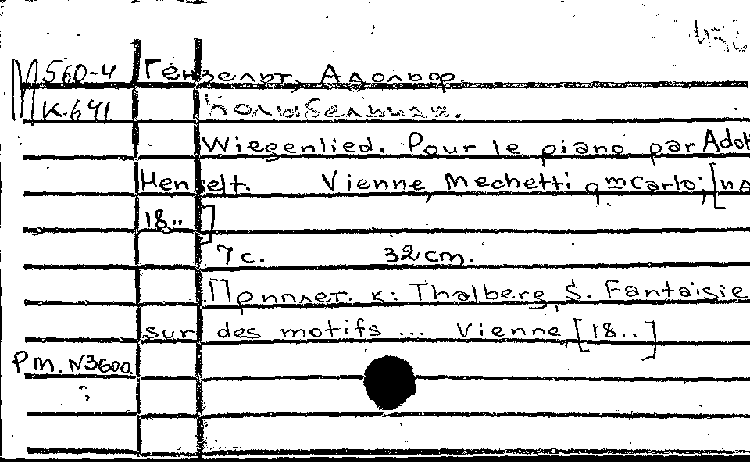 М 560-4 Гензельт, Адольф.
К-641 Колыбельная.
Wiegenlied. Pour le piano par Adol
Henselt. Vienne, Mechetti qm Carlo; [
18..]
7 с. 32 cm.
Приплет. к: Thalberg, S. Fantaisie
sur des motifs ... Vienne [18..]
Р.м. N3600